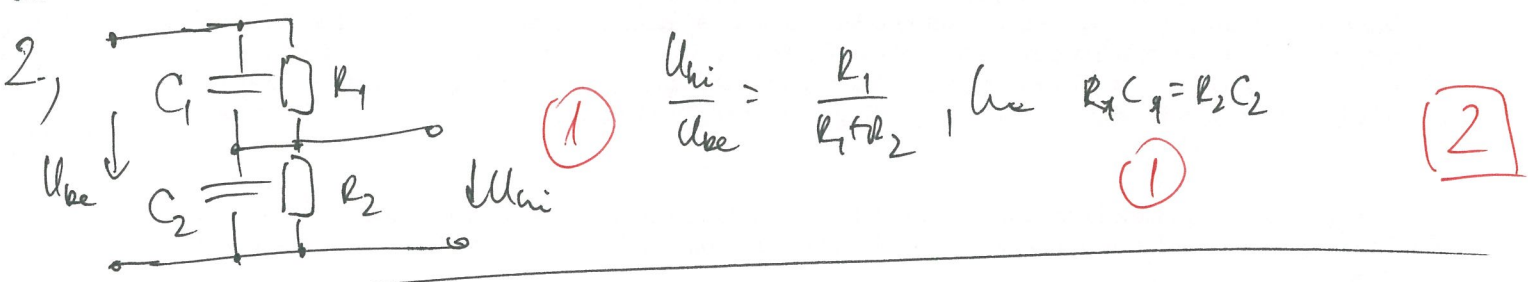 2.,
C₁ R₁
U_be
C₂ R₂ U_ki
① U_ki / U_be = R₁ / (R₁+R₂) , ha R₁C₁=R₂C₂
①
2